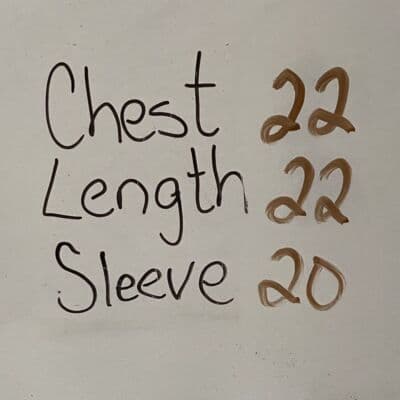 Chest 22
Length 22
Sleeve 20